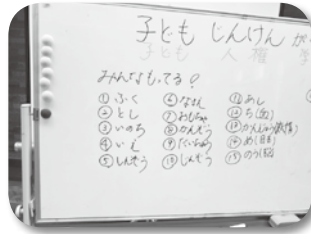 子ども じんけん が
子ども 人権 学
みんなもってる?
① ふく
② とし
③ いのち
④ いえ
⑤ しんぞう
⑦ おもちゃ
⑧ かんぞう
⑩ じんぞう
⑪ あし
⑫ ち(血)
⑬ かんじょう(感情)
⑭ め(目)
⑮ のう(脳)